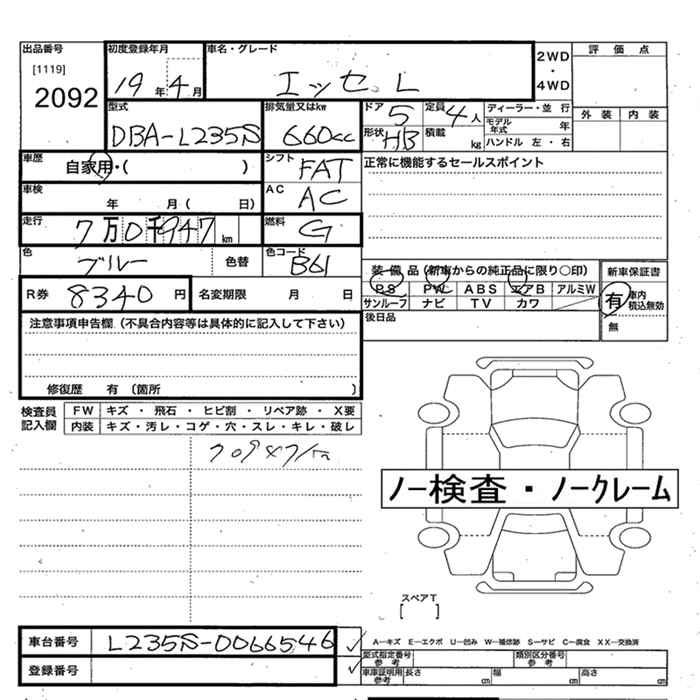 出品番号 初度登録年月 車名・グレード 2WD・4WD 評価点
[1119]
2092 19年4月 エッセ L 外装 内装
型式 排気量又はkw ドア 5 定員 4人 ディーラー・並行
DBA-L235S 660cc 形状 HB 積載 kg モデル年式 年
ハンドル 左・右
車歴 自家用・( ) シフト FAT 正常に機能するセールスポイント
車検 年 月( 日) AC AC
走行 7万0千947km 燃料 G
色 ブルー 色替 色コード B61 装備品(新車からの純正品に限り○印) 新車保証書
R券 8340円 名変期限 月 日 PS PW ABS エアB アルミW 有 車内積込無効
サンルーフ ナビ TV カワ 無
注意事項申告欄(不具合内容等は具体的に記入して下さい) 後日品
修復歴 有 (箇所 )
検査員記入欄 FW キズ・飛石・ヒビ割・リペア跡・X要
内装 キズ・汚レ・コゲ・穴・スレ・キレ・破レ
70947km
ノー検査・ノークレーム
スペアT
[ ]
車台番号 L235S-0066546 A―キズ E―エクボ U―凹み W―補修跡 S―サビ C―腐食 XX―交換済
登録番号 型式指定番号 参考 類別区分番号 参考
車庫証明用 参考 長さ cm 幅 cm 高さ cm